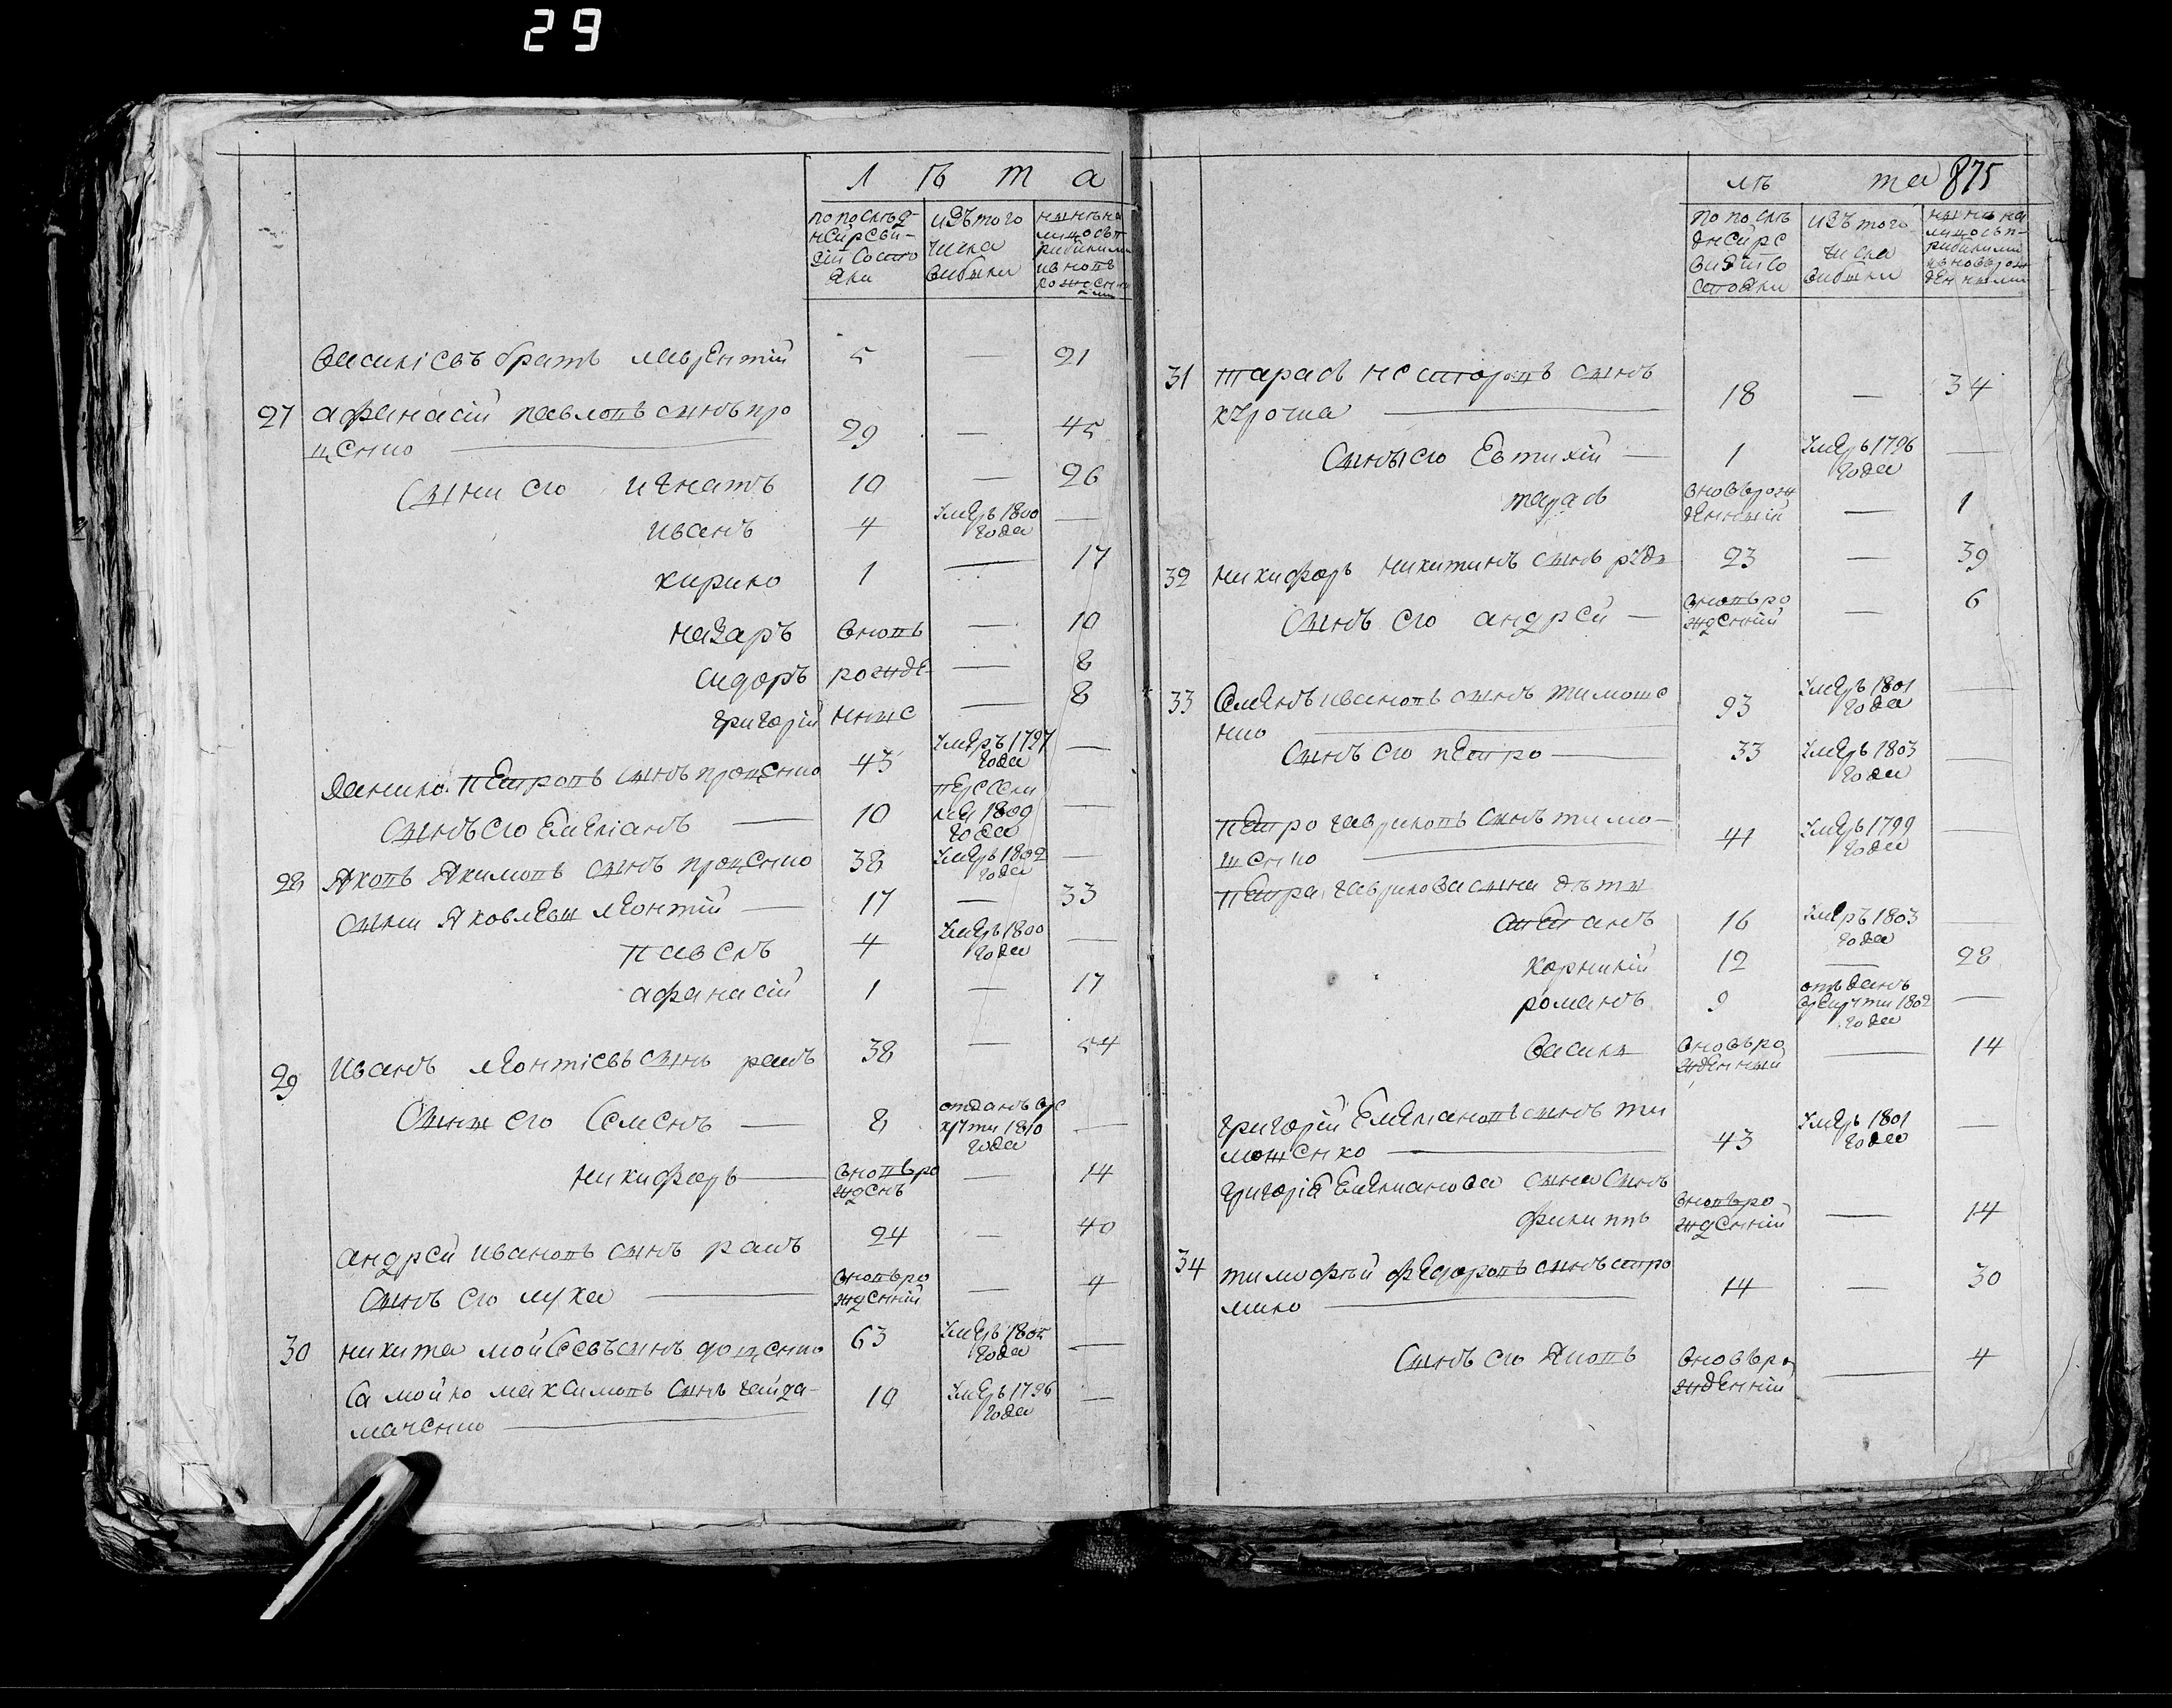 29
Л ѣ т а
по послѣд-
ней реви-
зіи состо
яли
изъ того
числа
выбыли
нынѣ на
лицо съ п-
рибылыми
и вновь
рожденны
ми
Василіевъ братъ Лаврентій 5 — 21
27 Афанасій Павловъ сынъ Про
ценко 29 — 45
Сыни его Игнатъ 10 — 26
Иванъ 4 умеръ 1800 года —
Кирило 1 — 17
Назаръ вновь — 10
Сидоръ рожде- — 8
Григорій нные — 8
Данило Петровъ сынъ Проценко 43 умеръ 1797 года —
Сынъ его Емеліанъ 10 года 1809 —
28 Яковъ Якимовъ сынъ Проценко 38 умеръ 1802 года —
Сыни Яковлевы Леонтій — 17 — 33
Павелъ 4 умеръ 1800 года —
Афанасій 1 — 17
29 Иванъ Леонтіевъ сынъ 38 — 54
Сыны его Семенъ — 8 отданъ в ре
круты 1810
года —
Никифоръ — вновь ро
жденъ — 14
Андрей Ивановъ сынъ 24 — 40
Сынъ его Лука — вновь ро
жденній — 4
30 Никита Мойсеевъ сынъ Доценко 63 умеръ 1805 года —
Самойло Максимовъ сынъ Гайда-
маченко — 10 умеръ 1796 года —
лѣ та 875
по послѣ
дней ре
визіи со
стояли
изъ того
числа
выбыли
нынѣ на
лицо съ п-
рибылыми
и вноврож
денными
31 Тарасъ Несторовъ сынъ
— 18 — 34
Сыны его Евтихій — 1 умеръ 1796 года —
Тарасъ вновьрож
денный — 1
32 Никифоръ Никитинъ сынъ 23 — 39
Сынъ его Андрей — вновь ро
жденній — 6
33 Семенъ Ивановъ сынъ Тимоше
нко — 93 умеръ 1801 года —
Сынъ его Петро — 33 умеръ 1803 года —
Петро Гавриловъ сынъ Тимо-
шенко — 41 умеръ 1799 года —
Петра Гаврилова сына дѣты
Степанъ 16 умеръ 1803 года —
Корнилій 12 — 28
Романъ 9 отъданъ
в рекруты 1802
года —
Василь вновь ро
жденный — 14
Григорій Емеліановъ сынъ Ти
мошенко — 43 умеръ 1801 года —
Григорія Емельанова сына сынъ
Филиппъ вновь ро-
жденній — 14
34 Тимофѣй Федоровъ сынъ Стро
мило — 14 — 30
Сынъ его Яковъ вновь ро
жденній — 4